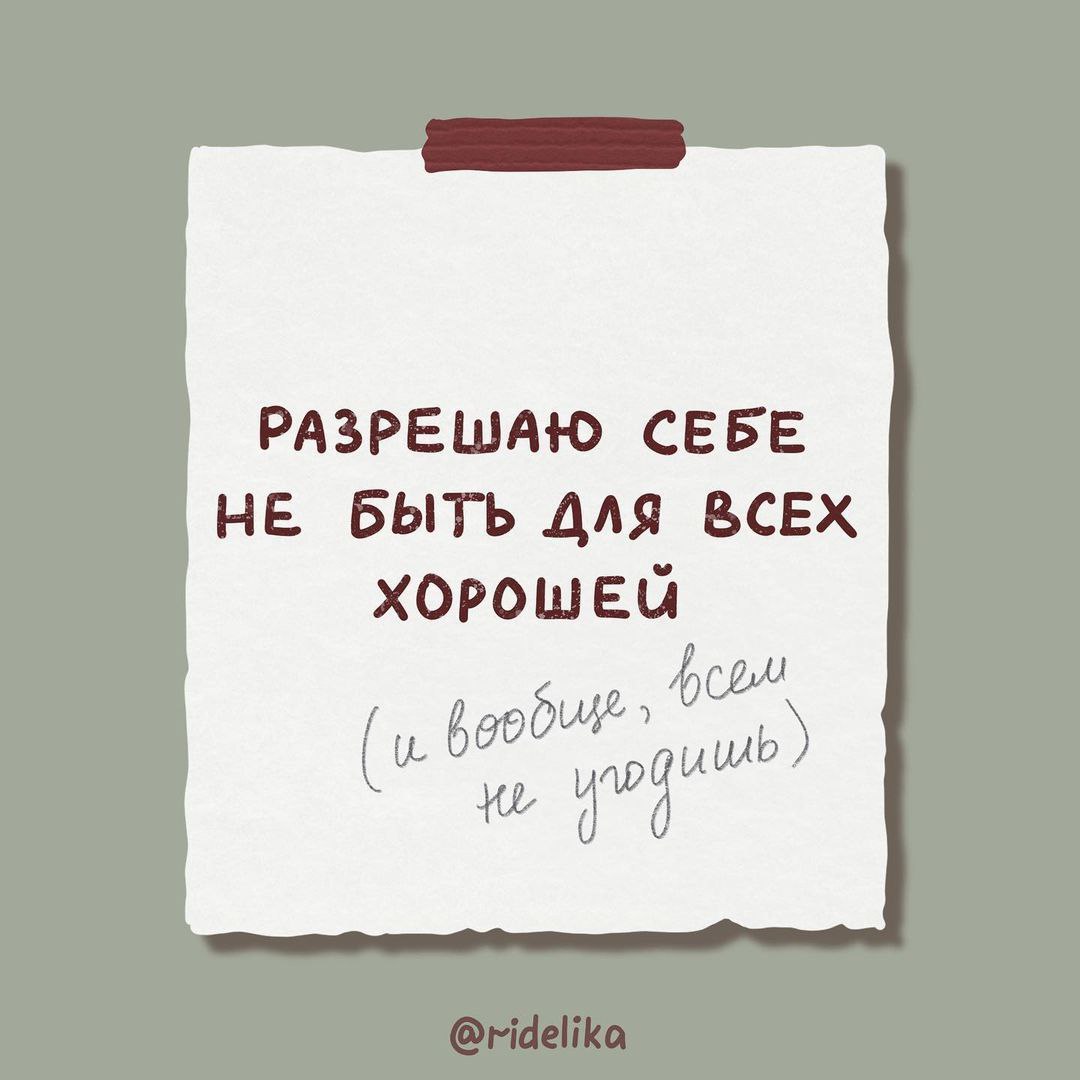 РАЗРЕШАЮ СЕБЕ
НЕ БЫТЬ ДЛЯ ВСЕХ
ХОРОШЕЙ
(и вообще, всем
не угодишь)
@ridelika